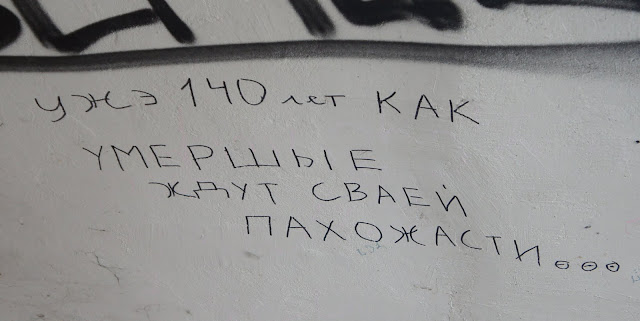 ужэ 140 лет КАК
УМЕРШЫЕ
ЖДУТ СВАЕЙ
ПАХОЖАСТИ...